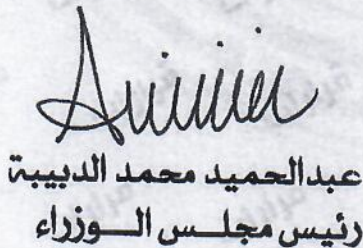 عبدالحميد محمد الدبيبة
رئيس مجلس الــوزراء